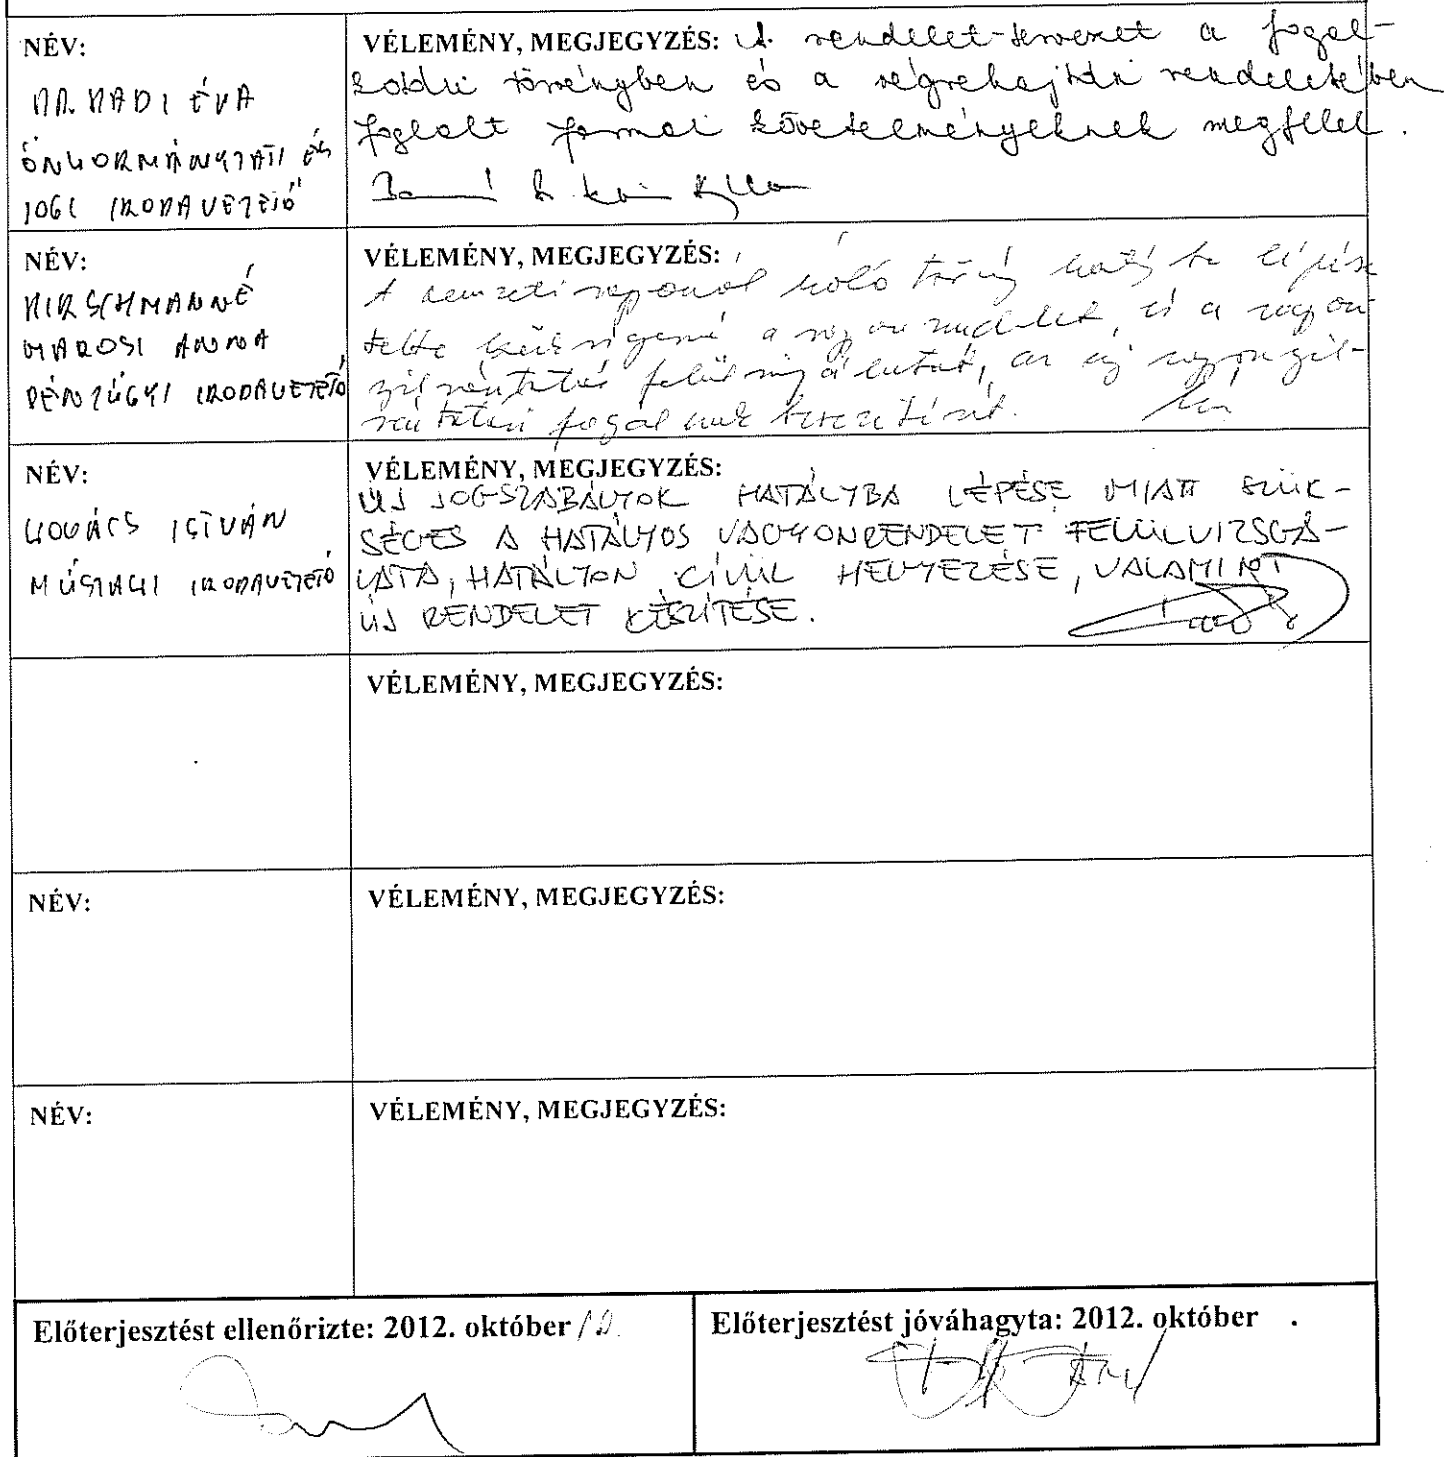 NÉV:
DR. NÁDI ÉVA
ÖNKORMÁNYZATI ÉS
JOGI IRODAVEZETŐ
VÉLEMÉNY, MEGJEGYZÉS: A rendelet-tervezet a jogal-
kotási törvényben és a végrehajtási rendeletében
foglalt formai követelményeknek megfelel.
NÉV:
HIRSCHMANNÉ
MAROSI ANNA
PÉNZÜGYI IRODAVEZETŐ
VÉLEMÉNY, MEGJEGYZÉS:
A nemzeti vagyonról szóló törvény hatályba lépése
tette szükségessé a vagyonrendelet, és a vagyon
felülvizsgálatát, az új
NÉV:
KOVÁCS ISTVÁN
MŰSZAKI IRODAVEZETŐ
VÉLEMÉNY, MEGJEGYZÉS:
ÚJ JOGSZABÁLYOK HATÁLYBA LÉPÉSE MIATT SZÜK-
SÉGES A HATÁLYOS VAGYONRENDELET FELÜLVIZSGÁ-
LATA, HATÁLYON KÍVÜL HELYEZÉSE, VALAMINT
ÚJ RENDELET KÉSZÍTÉSE.
VÉLEMÉNY, MEGJEGYZÉS:
NÉV:
VÉLEMÉNY, MEGJEGYZÉS:
NÉV:
VÉLEMÉNY, MEGJEGYZÉS:
Előterjesztést ellenőrizte: 2012. október
Előterjesztést jóváhagyta: 2012. október .